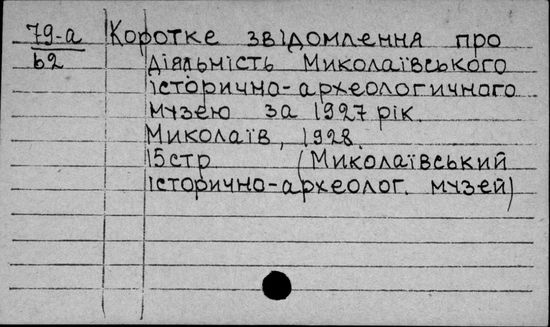 79-а Коротке звідомлення про
62 діяльність Миколаївського
історично-археологичного
музею за 1927 рік.
Миколаїв, 1928.
15стр (Миколаївський
історично-археолог. музей)